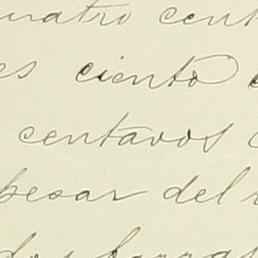 cuatro cent
es ciento
centavos
pesar del
dos